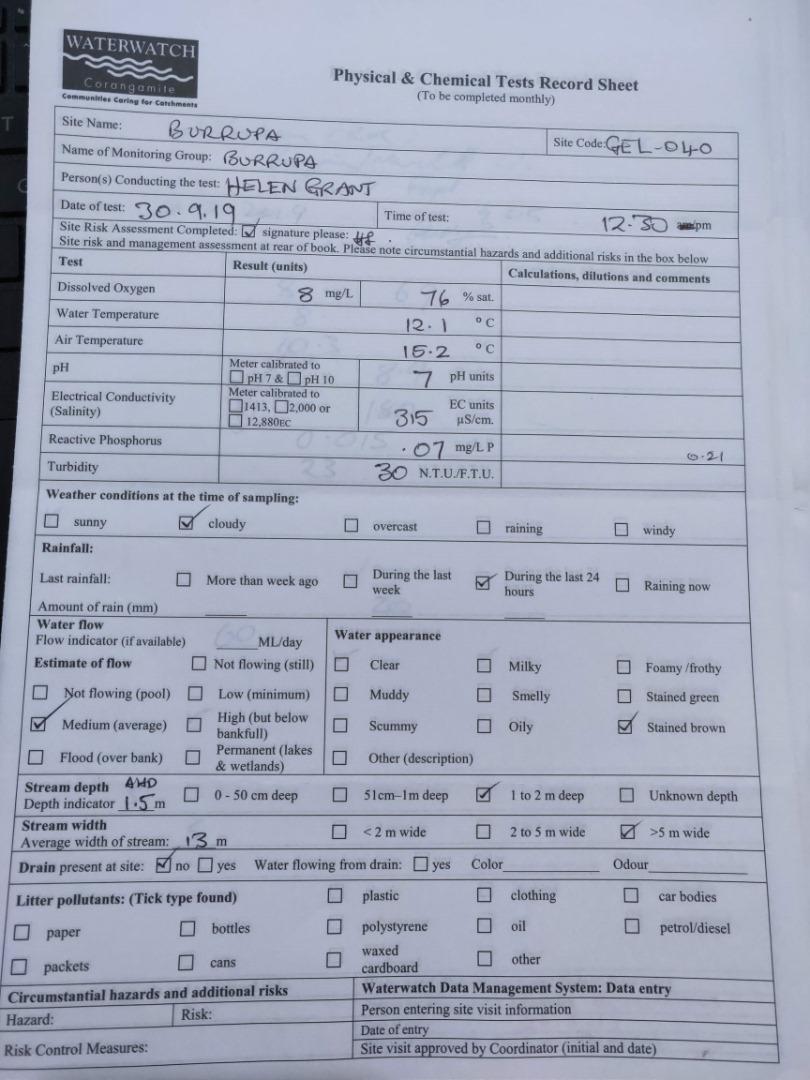 WATERWATCH
Corangamite
Communities Caring for Catchments
Physical & Chemical Tests Record Sheet
(To be completed monthly)
Site Name: BURRUPA Site Code: GEL-040
Name of Monitoring Group: BURRUPA
Person(s) Conducting the test: HELEN GRANT
Date of test: 30.9.19 Time of test: 12.30 am/pm
Site Risk Assessment Completed: ☑ signature please: HG.
Site risk and management assessment at rear of book. Please note circumstantial hazards and additional risks in the box below
Test Result (units) Calculations, dilutions and comments
Dissolved Oxygen 8 mg/L 76 % sat.
Water Temperature 12.1 °C
Air Temperature 15.2 °C
pH Meter calibrated to ☐ pH 7 & ☐ pH 10 7 pH units
Electrical Conductivity (Salinity) Meter calibrated to ☐ 1413, ☐ 2,000 or ☐ 12,880EC 315 EC units µS/cm.
Reactive Phosphorus .07 mg/L P 0.21
Turbidity 30 N.T.U./F.T.U.
Weather conditions at the time of sampling:
☐ sunny ☑ cloudy ☐ overcast ☐ raining ☐ windy
Rainfall:
Last rainfall: ☐ More than week ago ☐ During the last week ☑ During the last 24 hours ☐ Raining now
Amount of rain (mm)
Water flow
Flow indicator (if available) ML/day
Water appearance
Estimate of flow ☐ Not flowing (still) ☐ Clear ☐ Milky ☐ Foamy /frothy
☐ Not flowing (pool) ☐ Low (minimum) ☐ Muddy ☐ Smelly ☐ Stained green
☑ Medium (average) ☐ High (but below bankfull) ☐ Scummy ☐ Oily ☑ Stained brown
☐ Flood (over bank) ☐ Permanent (lakes & wetlands) ☐ Other (description)
Stream depth AHD
Depth indicator 1.5 m ☐ 0 - 50 cm deep ☐ 51cm–1m deep ☑ 1 to 2 m deep ☐ Unknown depth
Stream width
Average width of stream: 13 m ☐ < 2 m wide ☐ 2 to 5 m wide ☑ >5 m wide
Drain present at site: ☑ no ☐ yes Water flowing from drain: ☐ yes Color Odour
Litter pollutants: (Tick type found) ☐ plastic ☐ clothing ☐ car bodies
☐ paper ☐ bottles ☐ polystyrene ☐ oil ☐ petrol/diesel
☐ packets ☐ cans ☐ waxed cardboard ☐ other
Circumstantial hazards and additional risks
Hazard: Risk:
Risk Control Measures:
Waterwatch Data Management System: Data entry
Person entering site visit information
Date of entry
Site visit approved by Coordinator (initial and date)